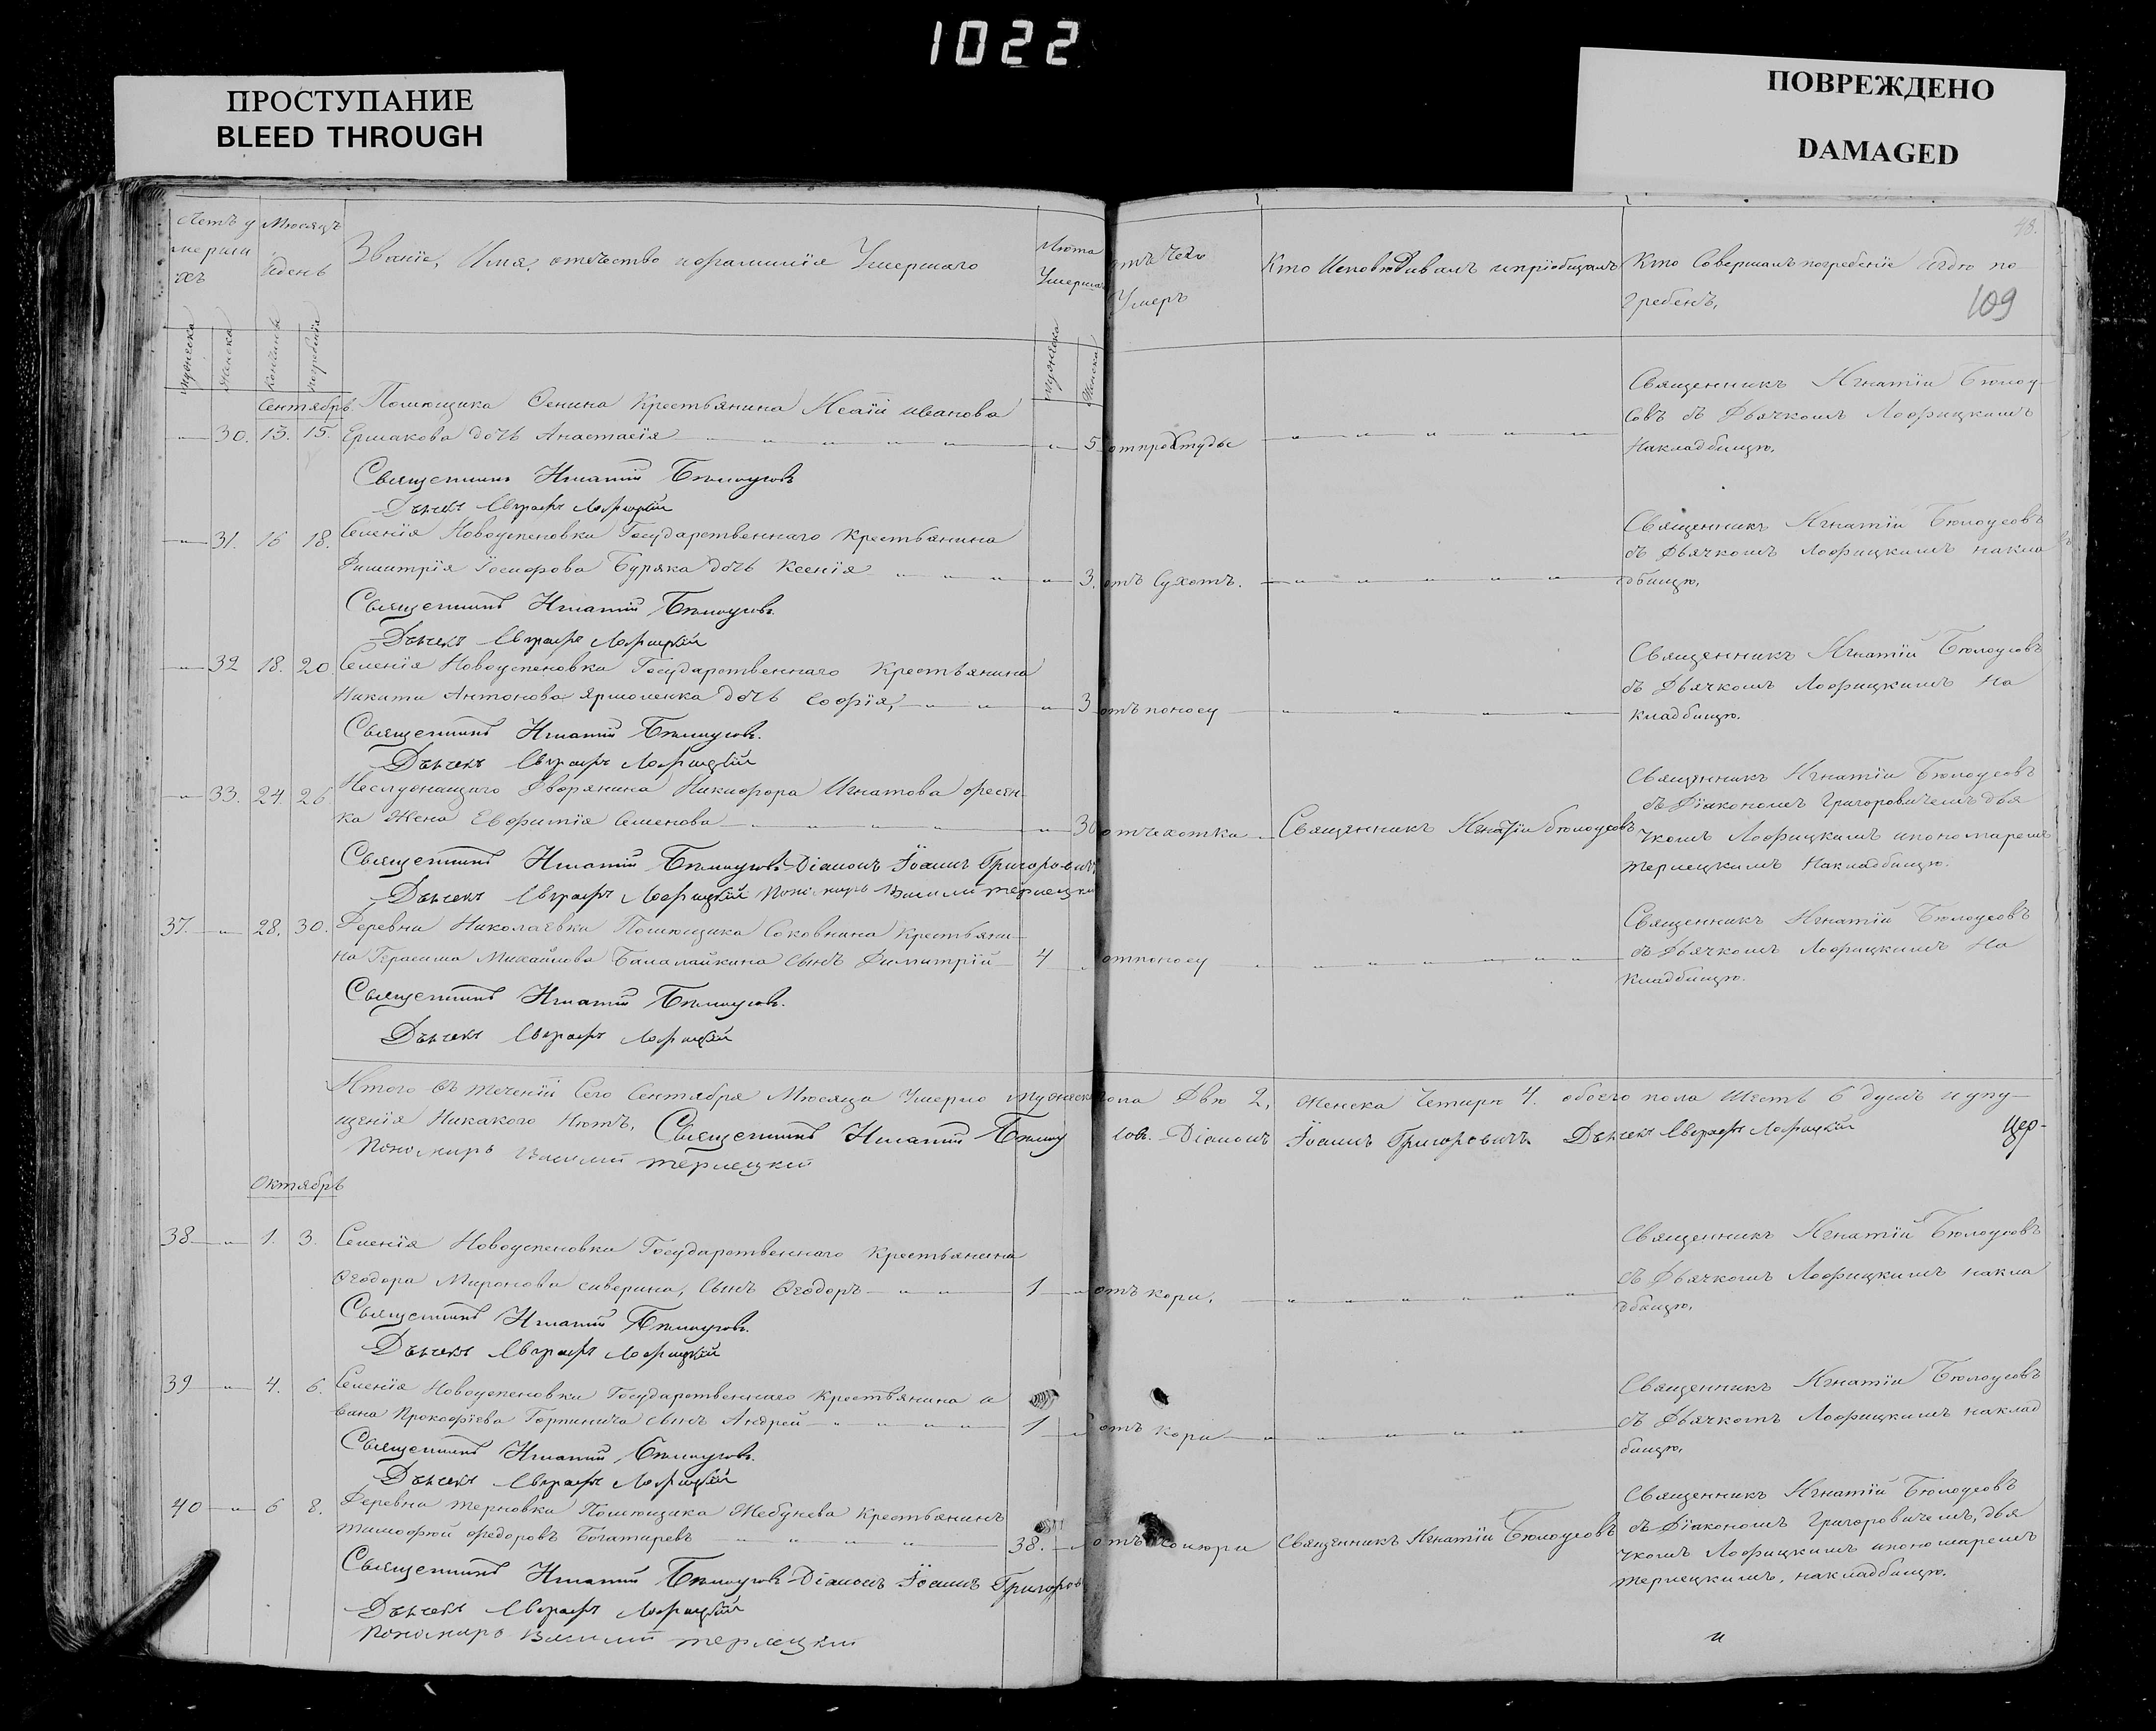 1022
ПРОСТУПАНИЕ
BLEED THROUGH
ПОВРЕЖДЕНО
DAMAGED
48.
109
Летъ у
мерши
хъ
Мѣсяцъ
и день
Званіе, Имя, отечество и фамилія Умершаго
Лѣта
Умершаго
отъ чего
Умеръ
Кто Исповѣдивалъ и пріобщалъ
Кто Совершалъ погребеніе и гдѣ по
гребенъ,
мужеска
женска
кончины
погребенія
мужеска
женска
Сентябрь
Помѣщика Сенина Крестьянина Исаіи иванова
30. 13. 15. Ермакова дочь Анастасія 5 от простуды
Священникъ Игнатій Бѣлоу
совъ съ Дьячкомъ Лофицкимъ
На кладбищѣ.
Священникъ Игнатій Бѣлоусовъ
Дьячекъ Евграфъ Лофицкій
31. 16 18. Селенія Новоуспеновки Государственнаго Крестьянина
Димитрія Іосифова Буряка дочь Ксенія 3. отъ Сухотъ.
Священникъ Игнатій Бѣлоусовъ
съ Дьячкомъ Лофицкимъ на кла
дбищѣ,
Священникъ Игнатій Бѣлоусовъ.
Дьячекъ Евграфъ Лофицкій
32 18. 20. Селенія Новоуспеновка Государственнаго Крестьянина
Никити Антонова Ярмоленка дочь Софія, 3 отъ поносу
Священникъ Игнатій Бѣлоусовъ
съ Дьячкомъ Лофицкимъ На
кладбищѣ.
Священникъ Игнатій Бѣлоусовъ.
Дьячекъ Евграфъ Лофицкій
33. 24. 26 Неслужащаго Дворянина Никифора Игнатова
ка Жена Евфимія Семенова 30 от чахотки Священникъ Игнатій Бѣлоусовъ
Священникъ Игнатій Бѣлоусовъ
съ Діакономъ Григоровичемъ дья
чкомъ Лофицкимъ и пономаремъ
Терлецкимъ На кладбищѣ.
Священникъ Игнатій Бѣлоусовъ Діаконъ Іоаннъ Григоровичъ
Дьячекъ Евграфъ Лофицкій Пономарь Василій Терлецкій
37. 28. 30. Деревни Николаевки Помѣщика Соковнина Крестьяни
на Герасима Михайлова Балалайкина Сынъ Димитрій 4 от поносу
Священникъ Игнатій Бѣлоусовъ
съ Дьячкомъ Лофицкимъ На
кладбищѣ.
Священникъ Игнатій Бѣлоусовъ.
Дьячекъ Евграфъ Лофицкій
Итого въ теченіи Сего Сентября Мѣсяца Умерло мужеска пола Двѣ 2, Женска Четыри 4. обоего пола Шесть 6 душъ и упу
щенія Никакого Нѣтъ, Священникъ Игнатій Бѣлоусовъ. Діаконъ Іоаннъ Григоровичъ Дьячекъ Евграфъ Лофицкій Цер-
Пономарь Василій Терлецкій
Октябрь
38 1. 3. Селенія Новоуспеновки Государственнаго Крестьянина
Феодора Миронова сиверина, Сынъ Феодоръ 1 отъ кори,
Священникъ Игнатій Бѣлоусовъ
съ Дьячкомъ Лофицкимъ на кла
дбищѣ,
Священникъ Игнатій Бѣлоусовъ
Дьячекъ Евграфъ Лофицкій
39 4. 6. Селенія Новоуспеновки Государственнаго Крестьянина и
вана Прокофіева Горпинича сынъ Андрей 1 отъ кори
Священникъ Игнатій Бѣлоусовъ
съ Дьячкомъ Лофицкимъ на клад
бищѣ,
Священникъ Игнатій Бѣлоусовъ.
Дьячекъ Евграфъ Лофицкій
40 6 8. Деревни Терновка Помѣщика Жебунева Крестьянинъ
Тимофѣй Федоровъ Богатиревъ 38. отъ Священникъ Игнатій Бѣлоусовъ
Священникъ Игнатій Бѣлоусовъ
съ Діакономъ Григоровичемъ, дья
чкомъ Лофицкимъ и пономаремъ
Терлецкимъ, на кладбищѣ.
Священникъ Игнатій Бѣлоусовъ Діаконъ Іоаннъ Григоров
Дьячекъ Евграфъ Лофицкій
Пономарь Василій Терлецкій
и